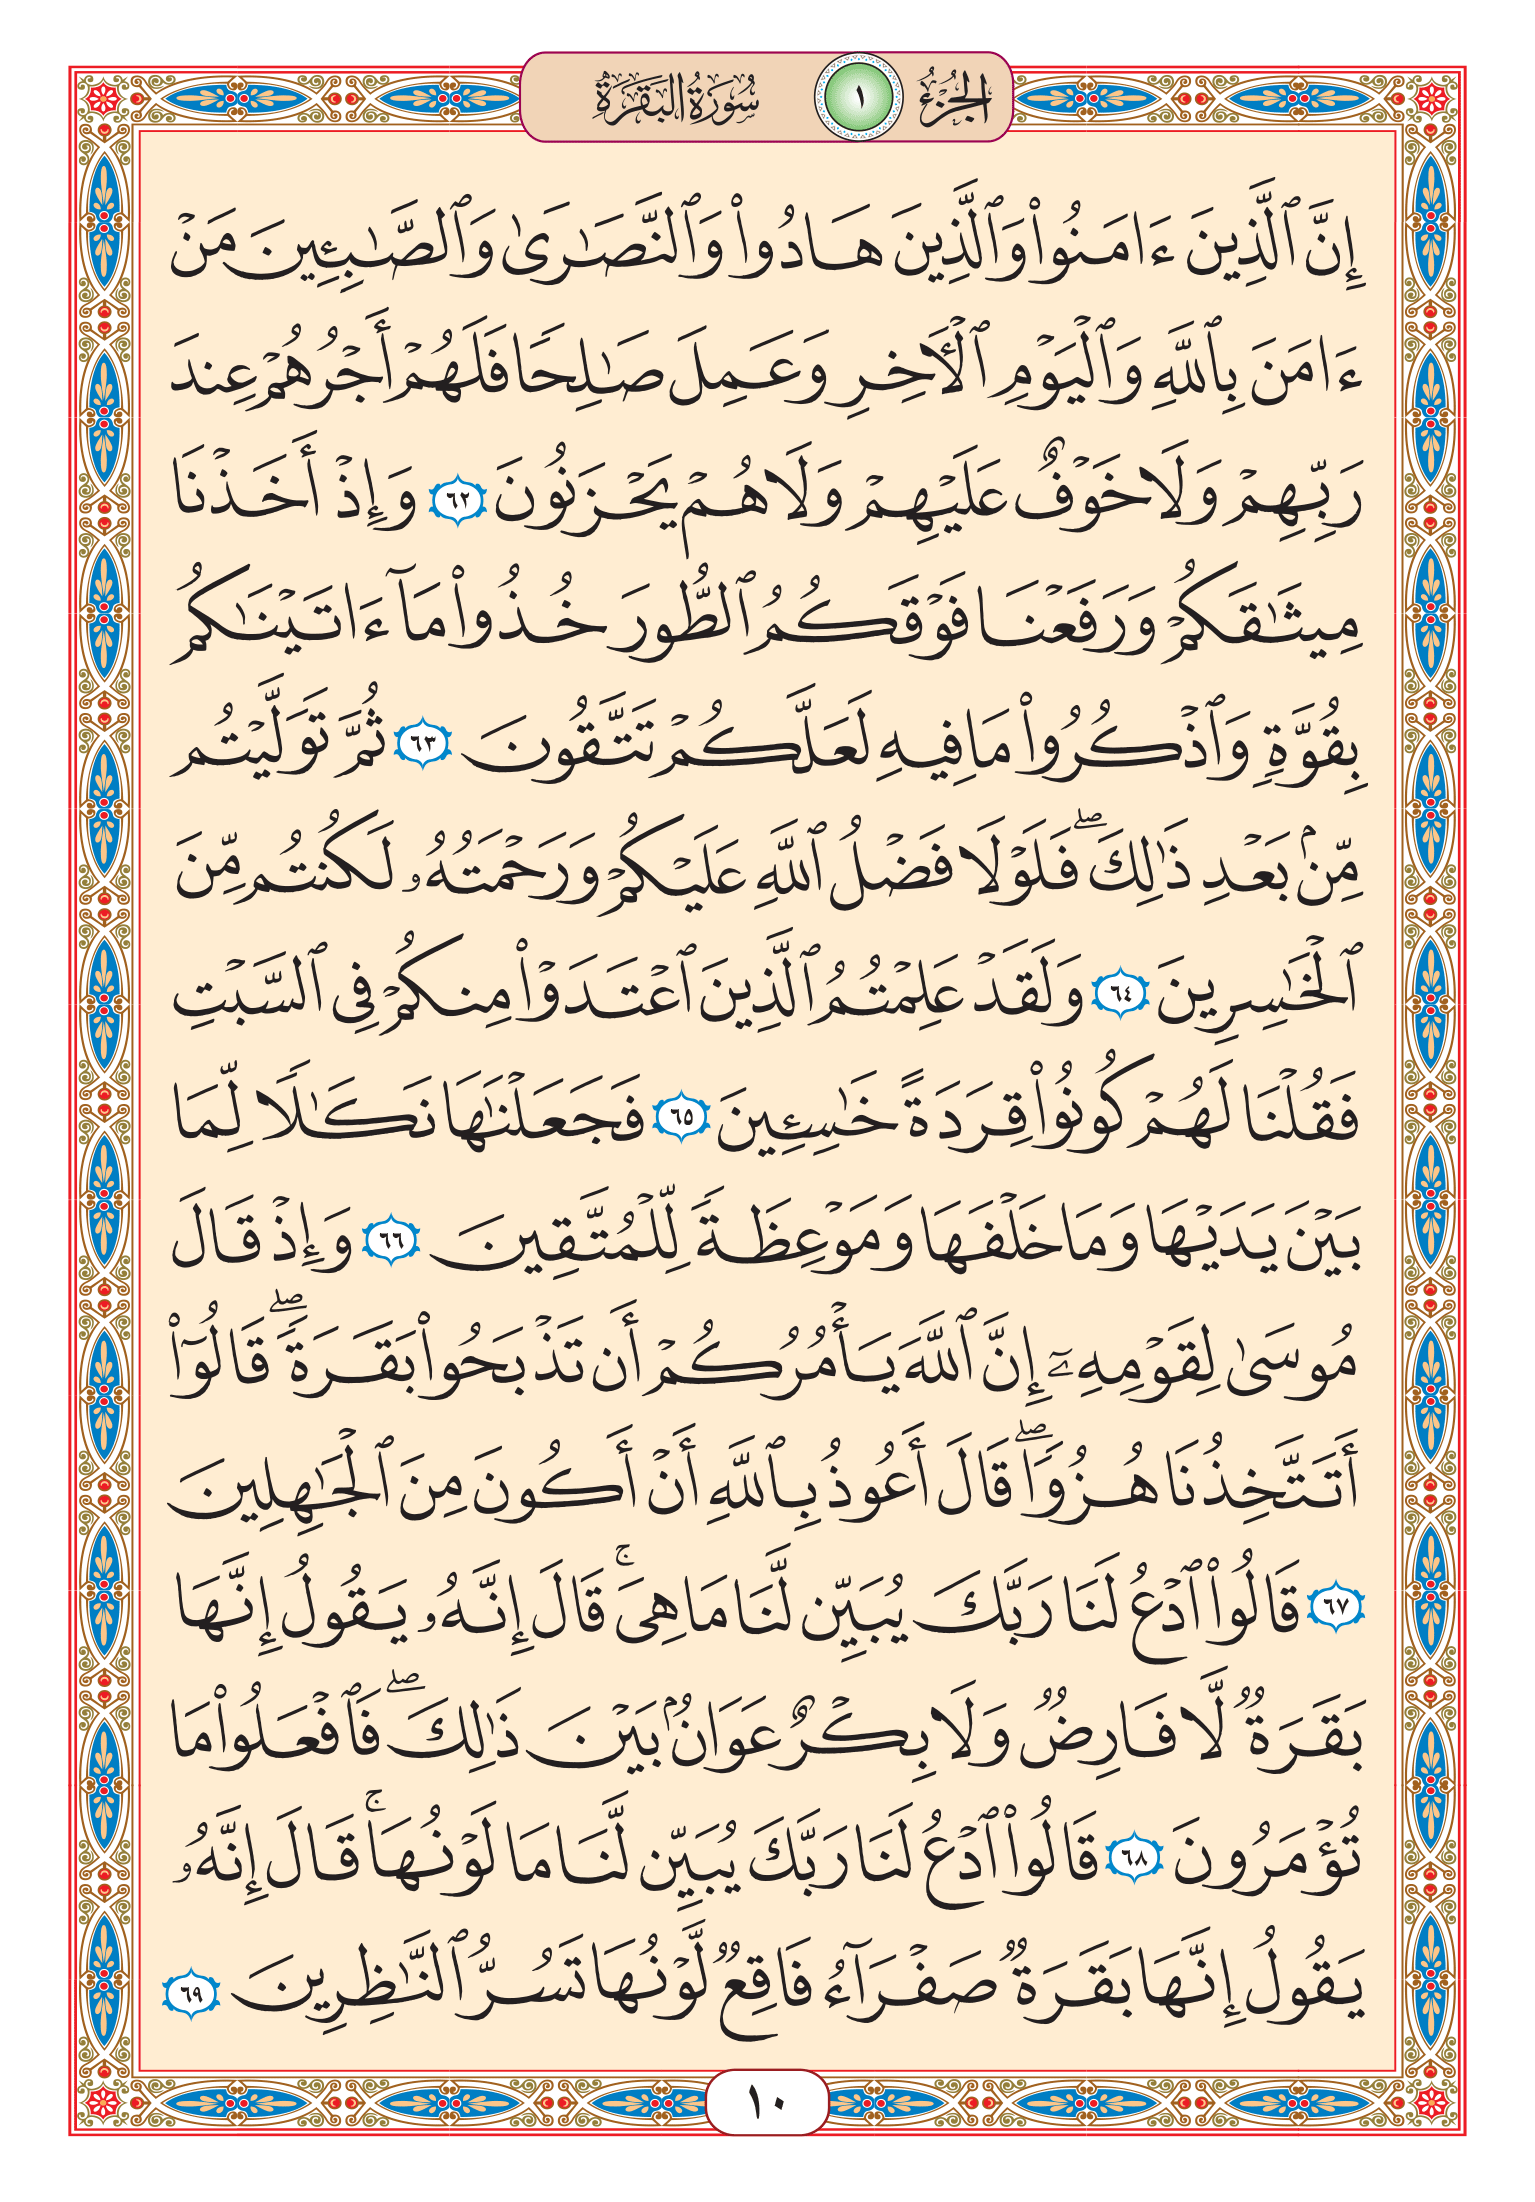 الجزء ١ سورة البقرة
إِنَّ ٱلَّذِينَ ءَامَنُوا۟ وَٱلَّذِينَ هَادُوا۟ وَٱلنَّصَٰرَىٰ وَٱلصَّٰبِـِٔينَ مَنْ
ءَامَنَ بِٱللَّهِ وَٱلْيَوْمِ ٱلْـَٔاخِرِ وَعَمِلَ صَٰلِحًا فَلَهُمْ أَجْرُهُمْ عِندَ
رَبِّهِمْ وَلَا خَوْفٌ عَلَيْهِمْ وَلَا هُمْ يَحْزَنُونَ ٦٢ وَإِذْ أَخَذْنَا
مِيثَٰقَكُمْ وَرَفَعْنَا فَوْقَكُمُ ٱلطُّورَ خُذُوا۟ مَآ ءَاتَيْنَٰكُم
بِقُوَّةٍ وَٱذْكُرُوا۟ مَا فِيهِ لَعَلَّكُمْ تَتَّقُونَ ٦٣ ثُمَّ تَوَلَّيْتُم
مِّنۢ بَعْدِ ذَٰلِكَ ۖ فَلَوْلَا فَضْلُ ٱللَّهِ عَلَيْكُمْ وَرَحْمَتُهُۥ لَكُنتُم مِّنَ
ٱلْخَٰسِرِينَ ٦٤ وَلَقَدْ عَلِمْتُمُ ٱلَّذِينَ ٱعْتَدَوْا۟ مِنكُمْ فِى ٱلسَّبْتِ
فَقُلْنَا لَهُمْ كُونُوا۟ قِرَدَةً خَٰسِـِٔينَ ٦٥ فَجَعَلْنَٰهَا نَكَٰلًا لِّمَا
بَيْنَ يَدَيْهَا وَمَا خَلْفَهَا وَمَوْعِظَةً لِّلْمُتَّقِينَ ٦٦ وَإِذْ قَالَ
مُوسَىٰ لِقَوْمِهِۦٓ إِنَّ ٱللَّهَ يَأْمُرُكُمْ أَن تَذْبَحُوا۟ بَقَرَةً ۖ قَالُوٓا۟
أَتَتَّخِذُنَا هُزُوًا ۖ قَالَ أَعُوذُ بِٱللَّهِ أَنْ أَكُونَ مِنَ ٱلْجَٰهِلِينَ
٦٧ قَالُوا۟ ٱدْعُ لَنَا رَبَّكَ يُبَيِّن لَّنَا مَا هِىَ ۚ قَالَ إِنَّهُۥ يَقُولُ إِنَّهَا
بَقَرَةٌ لَّا فَارِضٌ وَلَا بِكْرٌ عَوَانٌۢ بَيْنَ ذَٰلِكَ ۖ فَٱفْعَلُوا۟ مَا
تُؤْمَرُونَ ٦٨ قَالُوا۟ ٱدْعُ لَنَا رَبَّكَ يُبَيِّن لَّنَا مَا لَوْنُهَا ۚ قَالَ إِنَّهُۥ
يَقُولُ إِنَّهَا بَقَرَةٌ صَفْرَآءُ فَاقِعٌ لَّوْنُهَا تَسُرُّ ٱلنَّٰظِرِينَ ٦٩
١٠